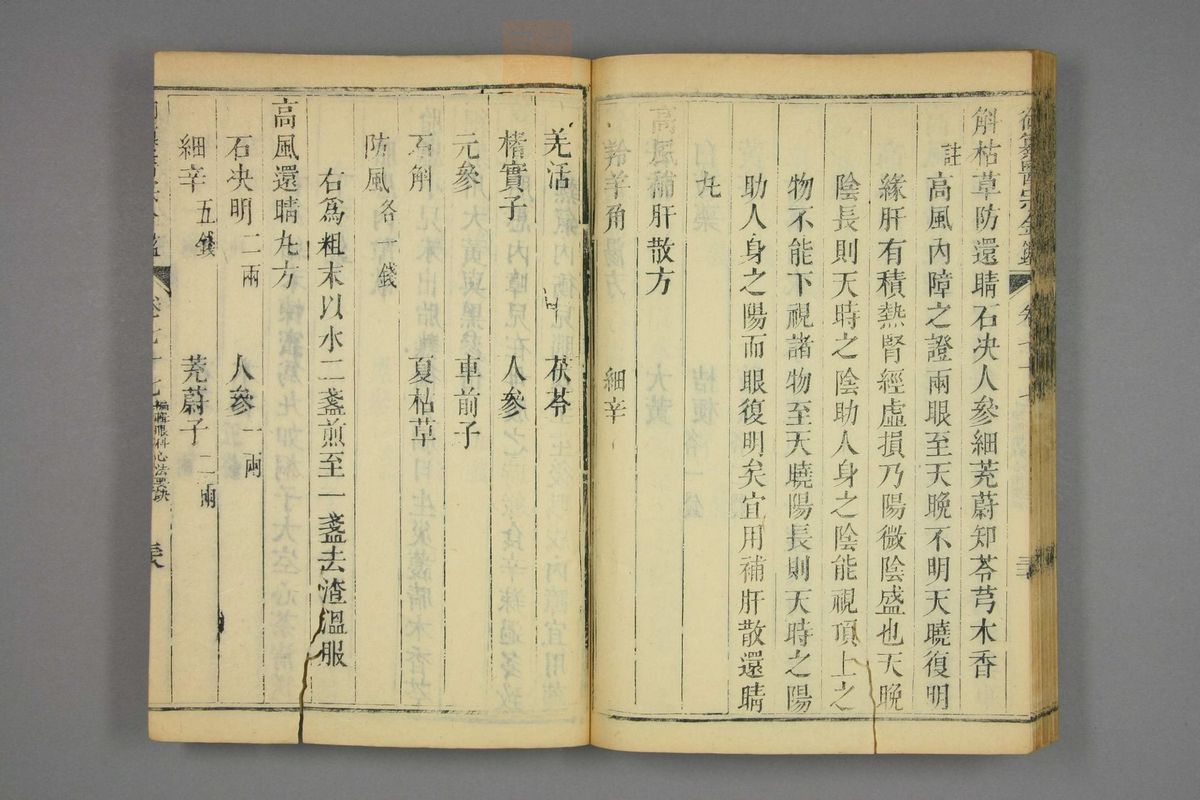 御纂醫宗金鑑 卷七十七
斛枯草防還睛石决人參細茺蔚知苓芎木香
註高風內障之證兩眼至天晚不明天曉復明
緣肝有積熱腎經虛損乃陽微陰盛也天晚
陰長則天時之陰助人身之陰能視頂上之
物不能下視諸物至天曉陽長則天時之陽
助人身之陽而眼復明矣宜用補肝散還睛
丸
高風補肝散方
羚羊角 細辛
羌活 茯苓
楮實子 人參
元參 車前子
石斛 夏枯草
防風各一錢
右爲粗末以水二盞煎至一盞去渣溫服
高風還睛丸方
石决明二兩 人參一兩
細辛五錢 茺蔚子二兩
卷七十七 編輯眼科心法要訣